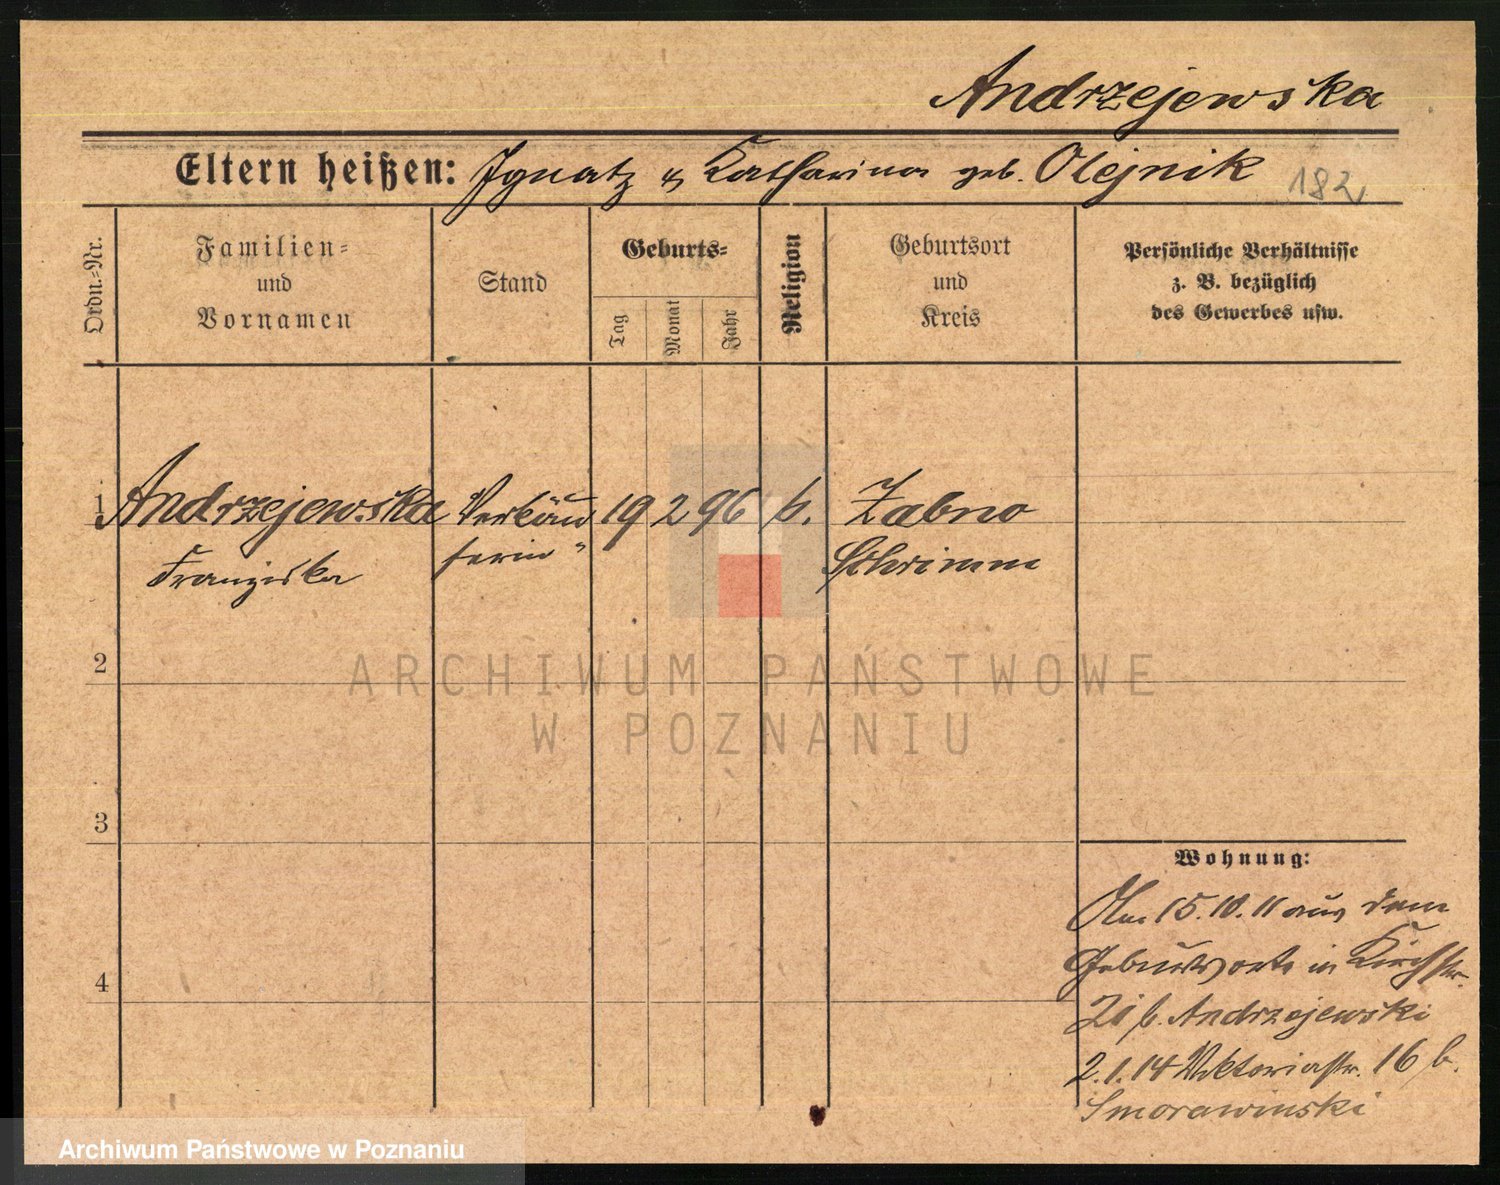 Andrzejewska
Eltern heißen: Ignatz & Katharina geb. Olejnik 182
Ordn.-Nr.
Familien-
und
Vornamen
Stand
Geburts-
Tag
Monat
Jahr
Religion
Geburtsort
und
Kreis
Persönliche Verhältnisse
z. B. bezüglich
des Gewerbes usw.
1 Andrzejewska Verkäu 19 2 96 k. Zabno
Franziska ferin Schrimm
2
ARCHIWUM PAŃSTWOWE
W POZNANIU
3
Wohnung:
Am 15.10.11 aus dem
Geburtsorte in Kirchstr.
b. Andrzejewski
4
2.1.14 Viktoriastr. 16 b.
Smorawinski
Archiwum Państwowe w Poznaniu